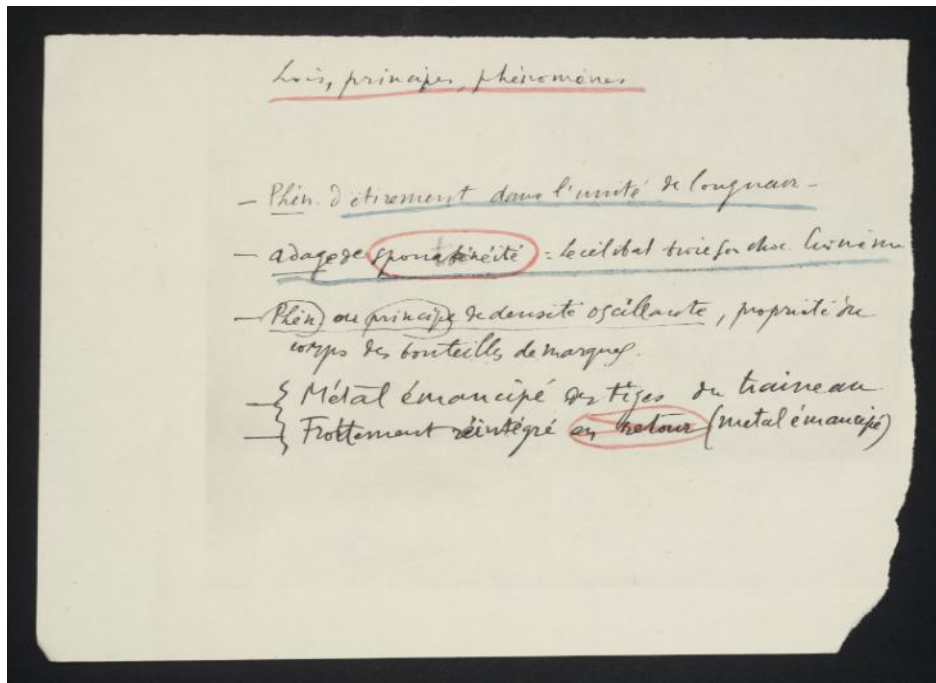 Lois, principes, phénomènes
– Phén. d'étirement dans l'unité de longueur –
– adage de spontanéité = le célibat. broie son choc. lui même
– Phén) ou principe de densité oscillante, propriété du
corps des bouteilles de marques.
– Métal émancipé des tiges du traineau
– Frottement réintégré en retour (metal émancipé)